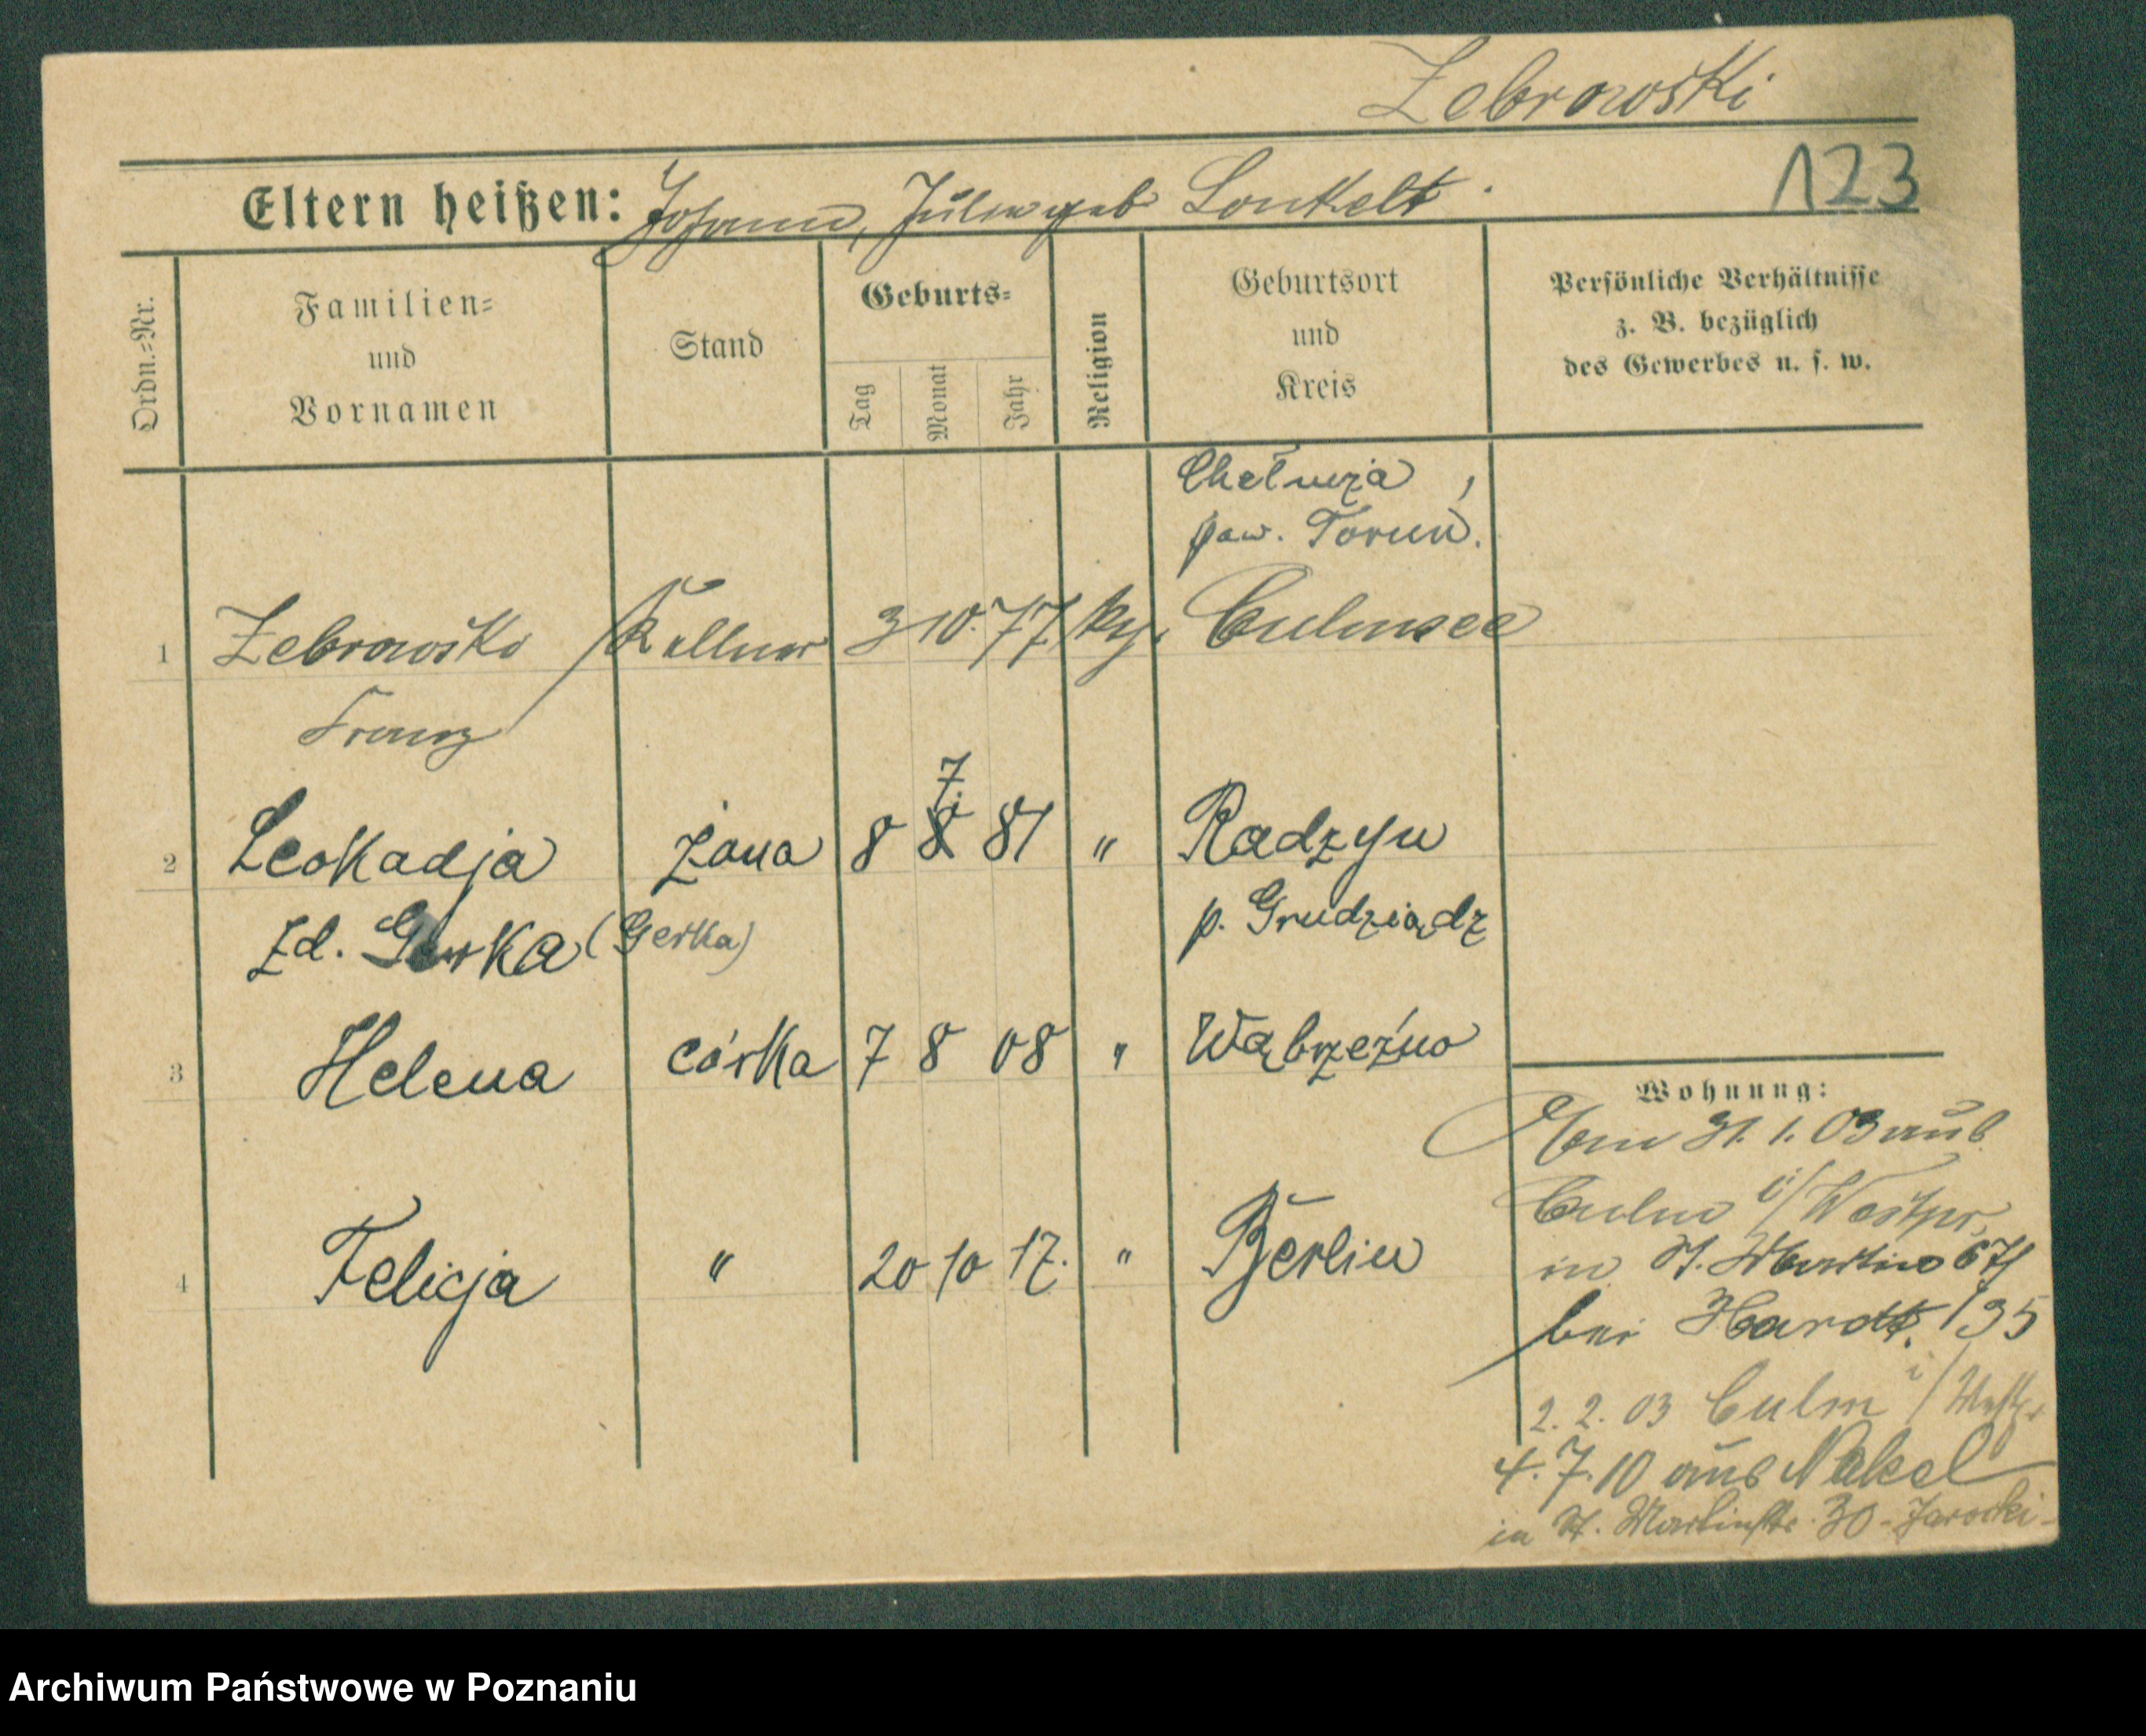 Zebrowski
123
Eltern heißen: Johann, Julia geb Lonkelt.
Ordn.=Nr.
Familien=
und
Vornamen
Stand
Geburts=
Tag
Monat
Jahr
Religion
Geburtsort
und
Kreis
Persönliche Verhältnisse
z. B. bezüglich
des Gewerbes u. s. w.
Chełmża,
pow. Toruń.
1 Zebrowski Kellner 3 10. 77 Culmsee
Franz
7.
2 Leokadja żona 8 8 81 " Radzyn
zd. (Gerka) p. Grudziądz
3 Helena córka 7 8 08 " Wąbrzeźno
4 Felicja " 20 10 17. " Berlin
Wohnung:
31. 1. 03 aus
Culm i/Westpr.
in St. Martin 67
bei Hardt. /35
2. 2. 03 Culm i/Westpr
4. 7. 10 aus Nakel
in St. Martinstr. 30 - Jarocki -
Archiwum Państwowe w Poznaniu